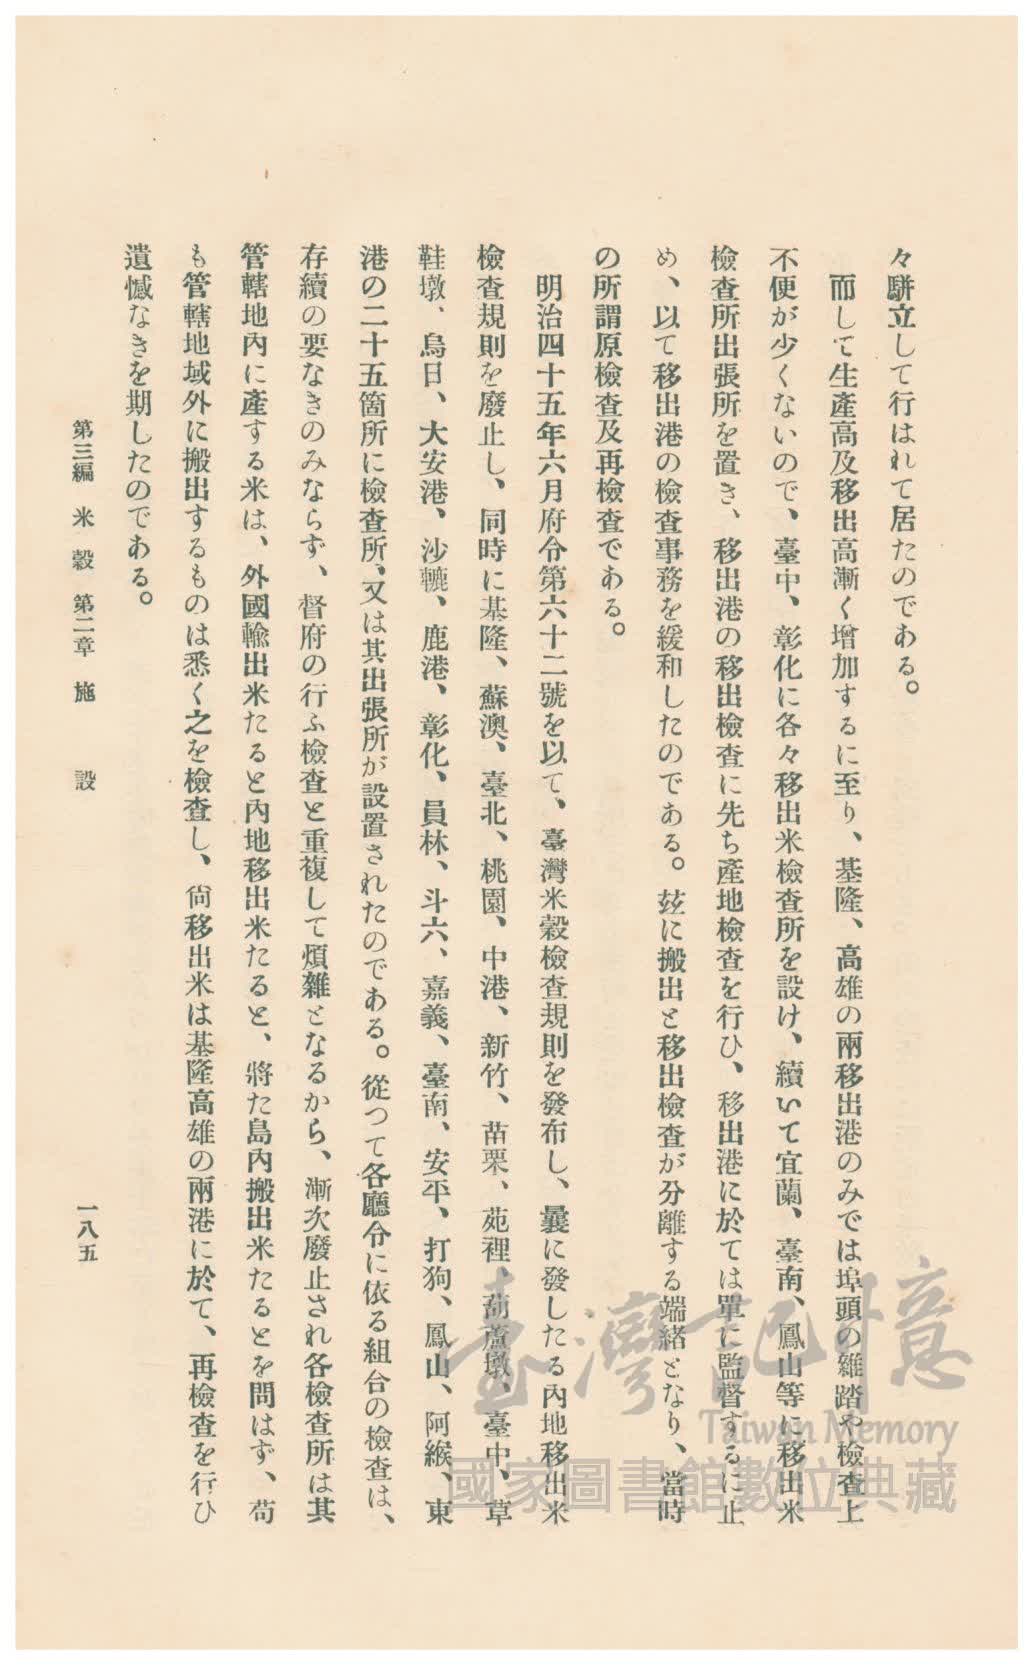 々駢立して行はれて居たのである。
而して生產高及移出高漸く增加するに至り、基隆、高雄の兩移出港のみでは埠頭の雜踏や檢查上
不便が少くないので、臺中、彰化に各々移出米檢查所を設け、續いて宜蘭、臺南、鳳山等に移出米
檢查所出張所を置き、移出港の移出檢查に先ち產地檢查を行ひ、移出港に於ては單に監督するに止
め、以て移出港の檢查事務を緩和したのである。玆に搬出と移出檢查が分離する端緒となり、當時
の所謂原檢查及再檢查である。
明治四十五年六月府令第六十二號を以て、臺灣米穀檢查規則を發布し、曩に發したる內地移出米
檢查規則を廢止し、同時に基隆、蘇澳、臺北、桃園、中港、新竹、苗栗、苑裡、葫蘆墩、臺中、草
鞋墩、烏日、大安港、沙轆、鹿港、彰化、員林、斗六、嘉義、臺南、安平、打狗、鳳山、阿緱、東
港の二十五箇所に檢查所、又は其出張所が設置されたのである。從つて各廳令に依る組合の檢查は、
存續の要なきのみならず、督府の行ふ檢查と重複して煩雜となるから、漸次廢止され各檢查所は其
管轄地內に產する米は、外國輸出米たると內地移出米たると、將た島內搬出米たるとを問はず、苟
も管轄地域外に搬出するものは悉く之を檢查し、尙移出米は基隆高雄の兩港に於て、再檢查を行ひ
遺憾なきを期したのである。
第三編 米穀 第二章 施設
一八五
臺灣記憶
Taiwan Memory
國家圖書館數位典藏